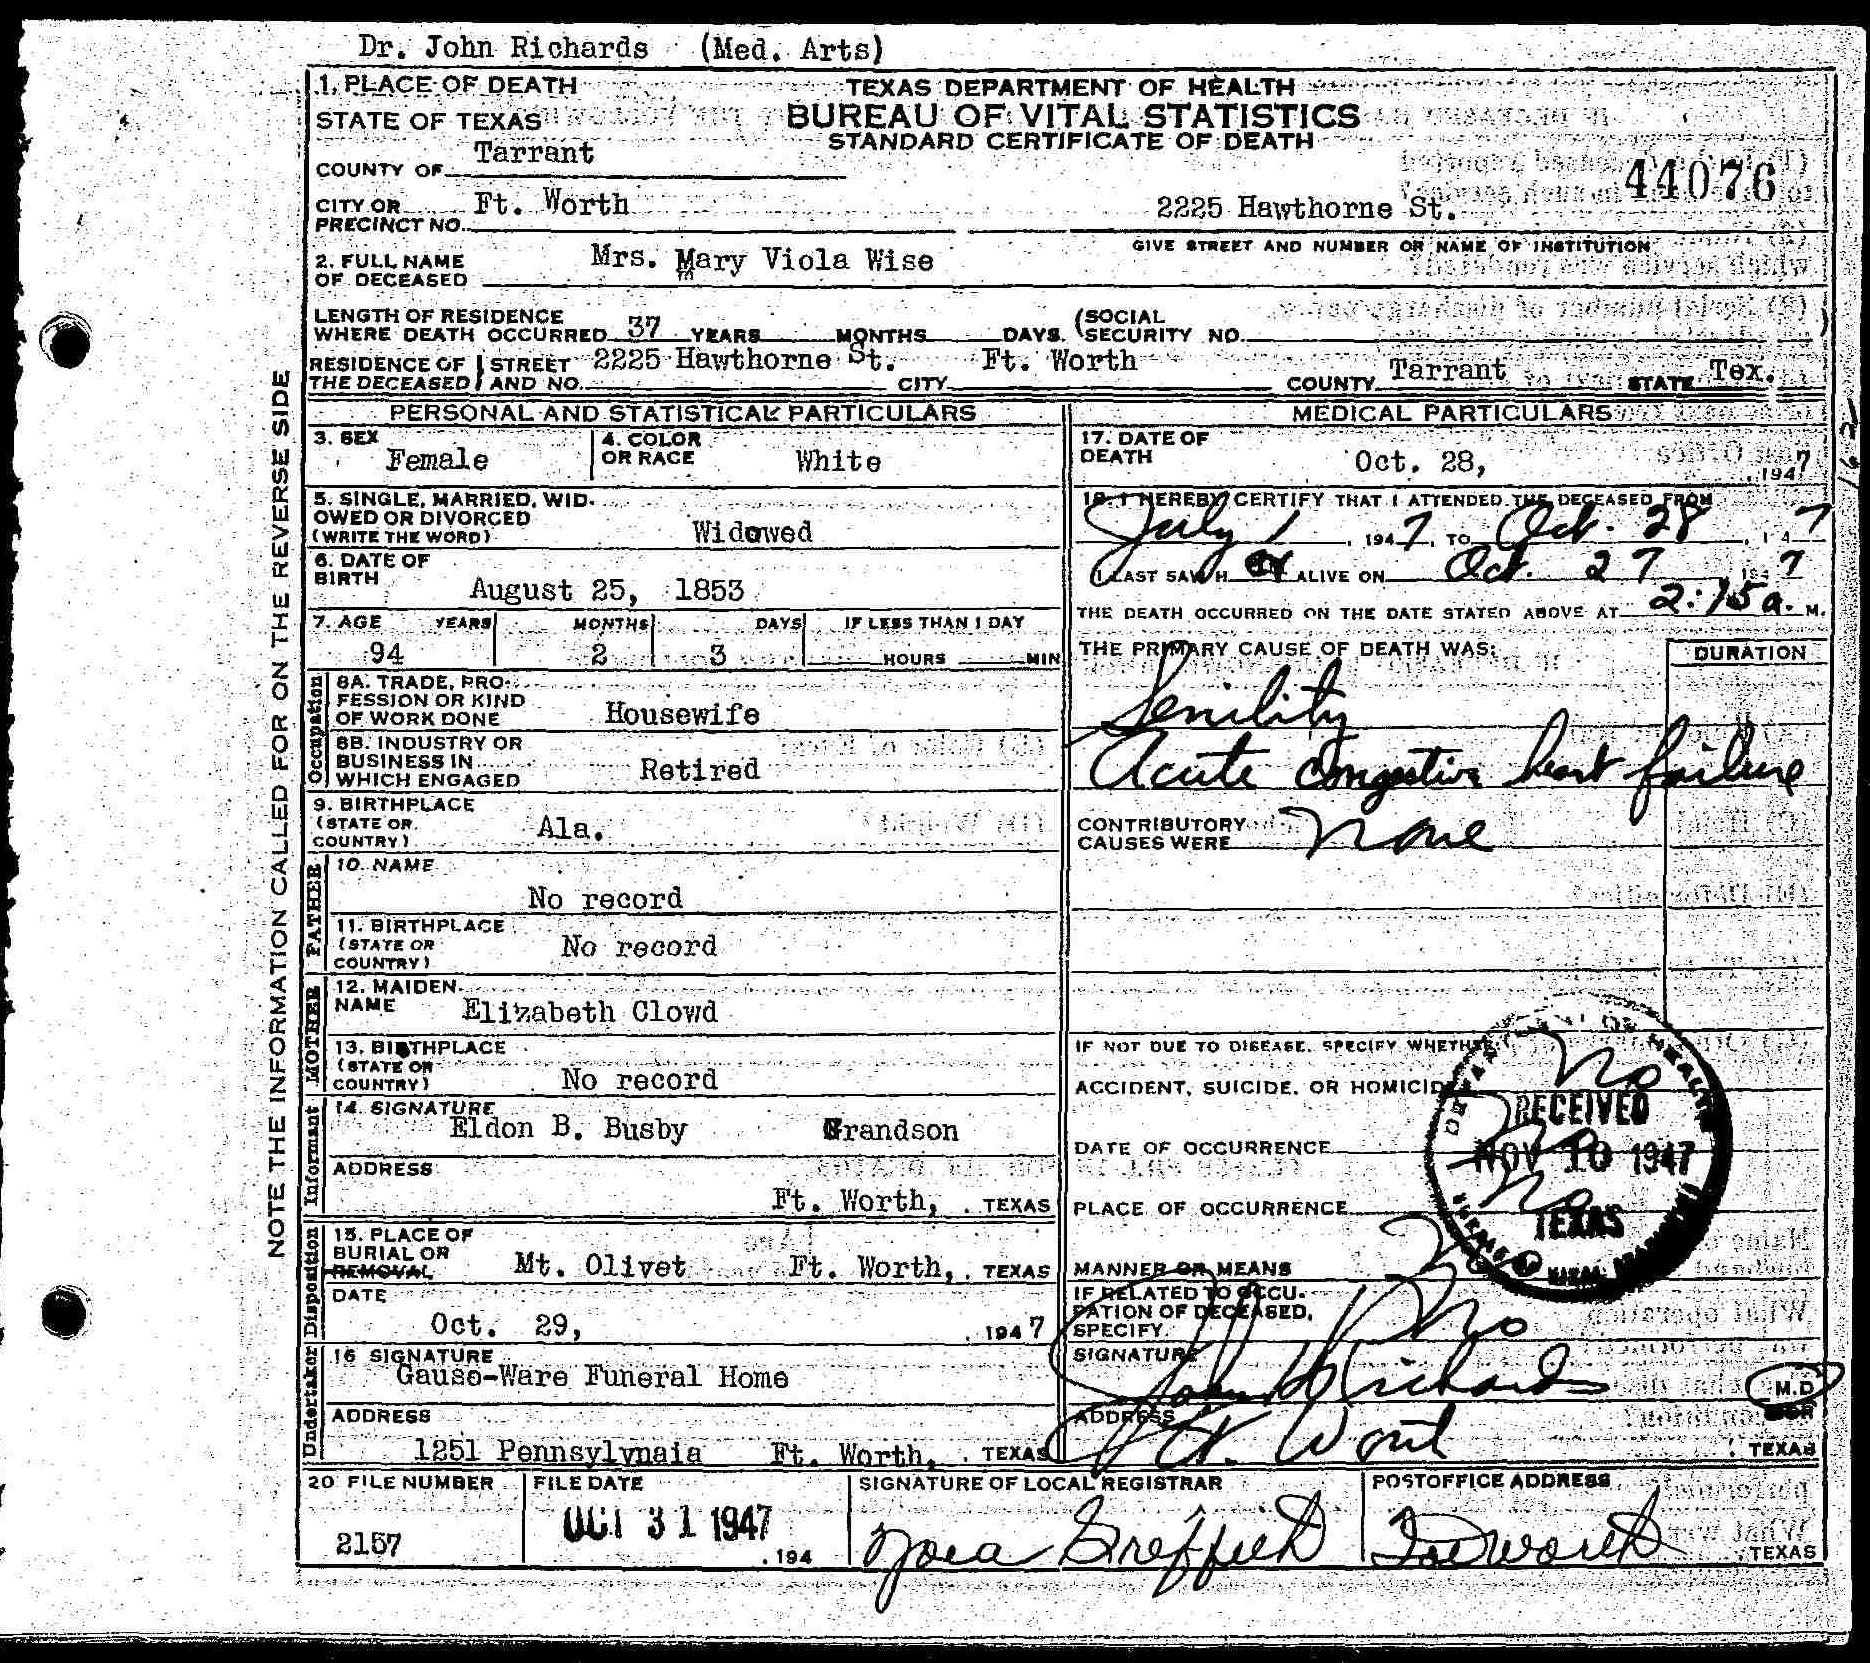 Dr. John Richards (Med. Arts)
1. PLACE OF DEATH
STATE OF TEXAS
TEXAS DEPARTMENT OF HEALTH
BUREAU OF VITAL STATISTICS
STANDARD CERTIFICATE OF DEATH
COUNTY OF Tarrant
44076
CITY OR PRECINCT NO. Ft. Worth
2225 Hawthorne St.
GIVE STREET AND NUMBER OR NAME OF INSTITUTION
2. FULL NAME OF DECEASED Mrs. Mary Viola Wise
LENGTH OF RESIDENCE
WHERE DEATH OCCURRED 37 YEARS MONTHS DAYS. (SOCIAL SECURITY NO. )
RESIDENCE OF THE DECEASED STREET AND NO. 2225 Hawthorne St. CITY Ft. Worth COUNTY Tarrant STATE Tex.
NOTE THE INFORMATION CALLED FOR ON THE REVERSE SIDE
PERSONAL AND STATISTICAL PARTICULARS
3. SEX Female
4. COLOR OR RACE White
5. SINGLE, MARRIED, WIDOWED OR DIVORCED
(WRITE THE WORD) Widowed
6. DATE OF BIRTH August 25, 1853
7. AGE YEARS MONTHS DAYS IF LESS THAN 1 DAY
94 2 3 HOURS MIN
Occupation
8A. TRADE, PROFESSION OR KIND OF WORK DONE Housewife
8B. INDUSTRY OR BUSINESS IN WHICH ENGAGED Retired
9. BIRTHPLACE (STATE OR COUNTRY) Ala.
FATHER
10. NAME
No record
11. BIRTHPLACE (STATE OR COUNTRY) No record
MOTHER
12. MAIDEN NAME Elizabeth Clowd
13. BIRTHPLACE (STATE OR COUNTRY) No record
Informant
14. SIGNATURE
Eldon B. Busby Grandson
ADDRESS
Ft. Worth, TEXAS
Disposition
15. PLACE OF BURIAL OR REMOVAL Mt. Olivet Ft. Worth, TEXAS
DATE
Oct. 29, 1947
Undertaker
16 SIGNATURE
Gause-Ware Funeral Home
ADDRESS
1251 Pennsylvnaia Ft. Worth, TEXAS
MEDICAL PARTICULARS
17. DATE OF DEATH Oct. 28, 1947
18. I HEREBY CERTIFY THAT I ATTENDED THE DECEASED FROM
July 1, 1947, TO Oct. 28, 1947
I LAST SAW H er ALIVE ON Oct. 27 1947
THE DEATH OCCURRED ON THE DATE STATED ABOVE AT 2:15 a. M.
THE PRIMARY CAUSE OF DEATH WAS: DURATION
Senility
Acute congestive heart failure
CONTRIBUTORY CAUSES WERE None
IF NOT DUE TO DISEASE, SPECIFY WHETHER
ACCIDENT, SUICIDE, OR HOMICIDE No
DATE OF OCCURRENCE No
PLACE OF OCCURRENCE No
MANNER OR MEANS No
DEPARTMENT OF HEALTH
RECEIVED
NOV 10 1947
TEXAS
IF RELATED TO OCCUPATION OF DECEASED, SPECIFY No
SIGNATURE John H Richards M.D
ADDRESS Ft. Worth TEXAS
20 FILE NUMBER
2157
FILE DATE
OCT 31 1947
, 194
SIGNATURE OF LOCAL REGISTRAR
POSTOFFICE ADDRESS
Fort Worth TEXAS